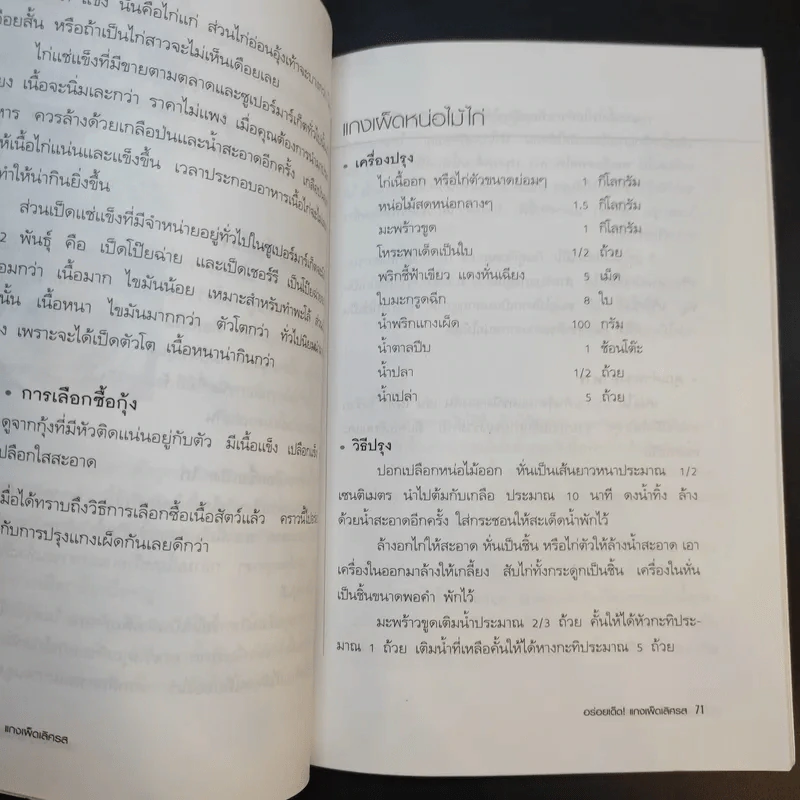 แข็ง นั่นคือไก่แก่ ส่วนไก่อ่อนอุ้งเท้าจะบาง
เดือยสั้น หรือถ้าเป็นไก่สาวจะไม่เห็นเดือยเลย
ไก่แช่แข็งที่มีขายตามตลาดและซูเปอร์มาร์เก็ตทั่วไป
เนื้อจะนิ่มเละกว่า ราคาไม่แพง เมื่อคุณต้องการนำมา
ควรล้างด้วยเกลือป่นและน้ำสะอาดอีกครั้ง
ให้เนื้อไก่แน่นและแข็งขึ้น เวลาประกอบอาหารเนื้อไก่
ทำให้น่ากินยิ่งขึ้น
ส่วนเป็ดแช่แข็งที่มีจำหน่ายอยู่ทั่วไปในซูเปอร์มาร์เก็ต
2 พันธุ์ คือ เป็ดโป๊ยฉ่าย และเป็ดเชอร์รี เป็ดโป๊ยฉ่าย
กว่า เนื้อมาก ไขมันน้อย เหมาะสำหรับทำพะโล้
นั้น เนื้อหนา ไขมันมากกว่า ตัวโตกว่า ทั่วไปนิยม
เพราะจะได้เป็ดตัวโต เนื้อหนาน่ากินกว่า
• การเลือกซื้อกุ้ง
ดูจากกุ้งที่มีหัวติดแน่นอยู่กับตัว มีเนื้อแข็ง เปลือกแข็ง
เปลือกใสสะอาด
เมื่อได้ทราบถึงวิธีการเลือกซื้อเนื้อสัตว์แล้ว คราวนี้
กับการปรุงแกงเผ็ดกันเลยดีกว่า
แกงเผ็ดเลิศรส
แกงเผ็ดหน่อไม้ไก่
• เครื่องปรุง
ไก่เนื้ออก หรือไก่ตัวขนาดย่อมๆ 1 กิโลกรัม
หน่อไม้สดหน่อกลางๆ 1.5 กิโลกรัม
มะพร้าวขูด 1 กิโลกรัม
โหระพาเด็ดเป็นใบ 1/2 ถ้วย
พริกชี้ฟ้าเขียว แดงหั่นเฉียง 5 เม็ด
ใบมะกรูดฉีก 8 ใบ
น้ำพริกแกงเผ็ด 100 กรัม
น้ำตาลปีบ 1 ช้อนโต๊ะ
น้ำปลา 1/2 ถ้วย
น้ำเปล่า 5 ถ้วย
• วิธีปรุง
ปอกเปลือกหน่อไม้ออก หั่นเป็นเส้นยาวหนาประมาณ 1/2
เซนติเมตร นำไปต้มกับเกลือ ประมาณ 10 นาที ดงน้ำทิ้ง ล้าง
ด้วยน้ำสะอาดอีกครั้ง ใส่กระชอนให้สะเด็ดน้ำพักไว้
ล้างอกไก่ให้สะอาด หั่นเป็นชิ้น หรือไก่ตัวให้ล้างน้ำสะอาด เอา
เครื่องในออกมาล้างให้เกลี้ยง สับไก่ทั้งกระดูกเป็นชิ้น เครื่องในหั่น
เป็นชิ้นขนาดพอคำ พักไว้
มะพร้าวขูดเติมน้ำประมาณ 2/3 ถ้วย คั้นให้ได้หัวกะทิประ-
มาณ 1 ถ้วย เติมน้ำที่เหลือคั้นให้ได้หางกะทิประมาณ 5 ถ้วย
อร่อยเด็ด! แกงเผ็ดเลิศรส 71